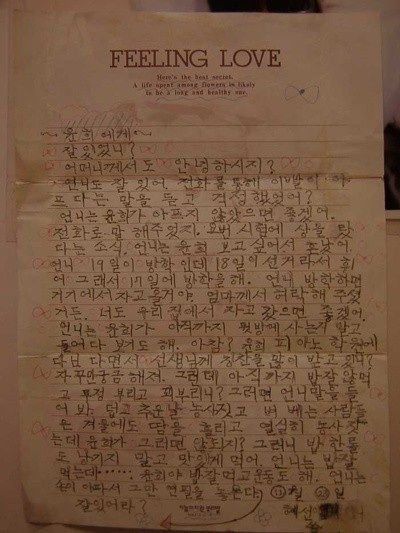 FEELING LOVE
Here's the best secret.
A life spent among flowers is likely
to be a long and healthy one.
~ 윤희에게 ~
잘있었니?
어머니께서도 안녕하시지?
언니도 잘 있어 전화를통해 이빨이 아
프다는 말을 듣고 걱정했었어?
언니는 윤희가 아프지 않았으면 좋겠어.
전화로 말해주었지. 요번 시험에 상을 탔
다는 소식. 언니는 윤희 보고싶어서
언니 19일이 방학인데 18일이 선거라서 쉬
어 그래서 17일에 방학을해. 언니 방학하면
거기에서 자고올거야. 엄마께서 허락해 주셨
거든. 너도 우리 집에서 자고 갔으면 좋겠어.
언니는 윤희가 아직까지 사는지 알고
들어다 보기도 해. 아참? 윤희 피아노 학원에
다닌 다면서 선생님께 칭찬을 많이 받고 있니?
자꾸만궁금해져. 그런데 아직까지 밥잘않먹
고 투정 부리고 피부리니? 그러면 언니말을들
어 봐. 덥고 추운날 농사짓고 벼 베는 사람들
은 겨울에도 땀을 흘리고 열심히 농사짓
는데 윤희가 그러면 않되지? 그러니 밥 한톨
도 남기지 말고 맛있게 먹어 언니는 밥잘
먹는데...... 윤희야 밥잘먹고 운동도 해. 언니는
손이 아파서 그만 연필을 놓는다.
잘있어라?